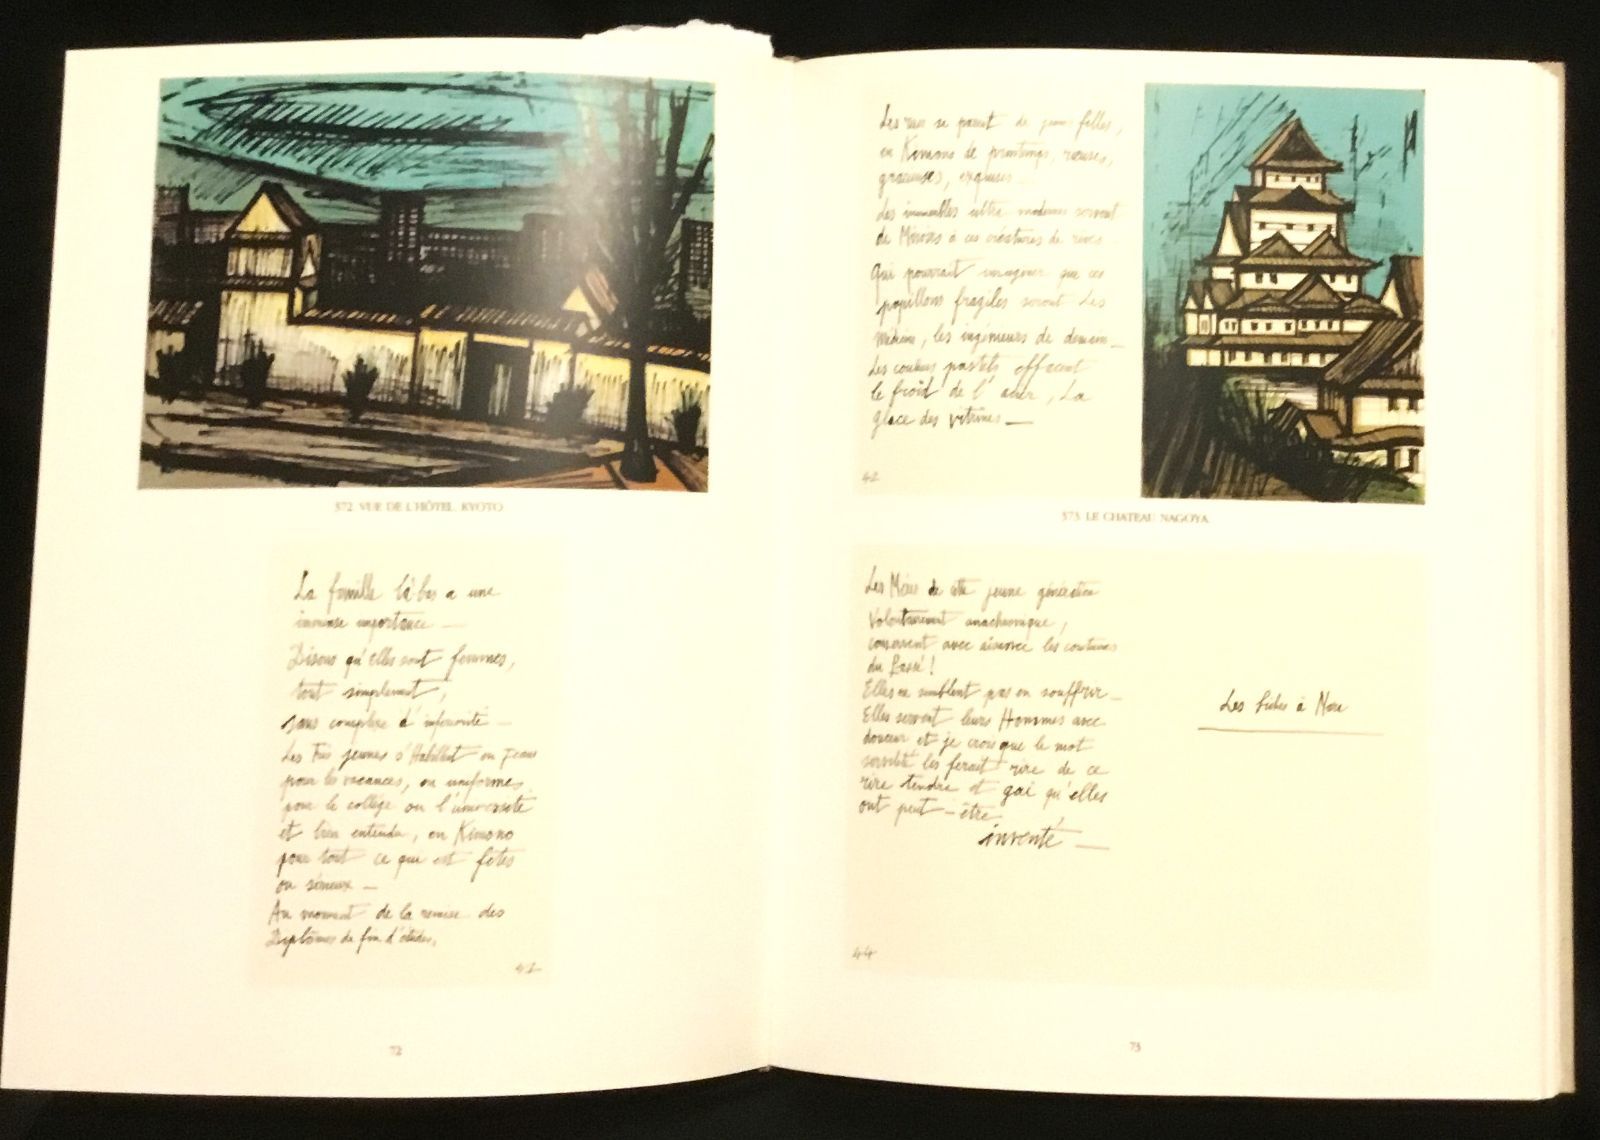 372 VUE DE L'HÔTEL, KYOTO
La famille là-bas a une
immense importance —
Disons qu'elles sont femmes,
tout simplement,
sans complexe d'infériorité —
Les Très jeunes s'Habillent en jeans
pour les vacances, en uniformes
pour le collège ou l'université
et bien entendu, en Kimono
pour tout ce qui est fêtes
ou sérieux —
Au moment de la remise des
Diplômes de fin d'études,
41
72
Les rues se parent de jeunes filles,
en Kimono de printemps, rieuses,
gracieuses, exquises —
Les immeubles ultra modernes servent
de Miroirs à ces créatures de rêves —
Qui pourrait imaginer que ces
papillons fragiles seront les
médecins, les ingénieurs de demain —
Les couleurs pastels effacent
le froid de l'acier, La
glace des vitrines —
42
373 LE CHATEAU NAGOYA
Les Mères de cette jeune génération
Volontairement anachronique,
conservent avec aisance les coutumes
du Passé !
Elles ne semblent pas en souffrir —
Elles servent leurs Hommes avec
douceur et je crois que le mot
servilité les ferait rire de ce
rire tendre et gai qu'elles
ont peut-être
inventé —
Les biches à Nara
44
73